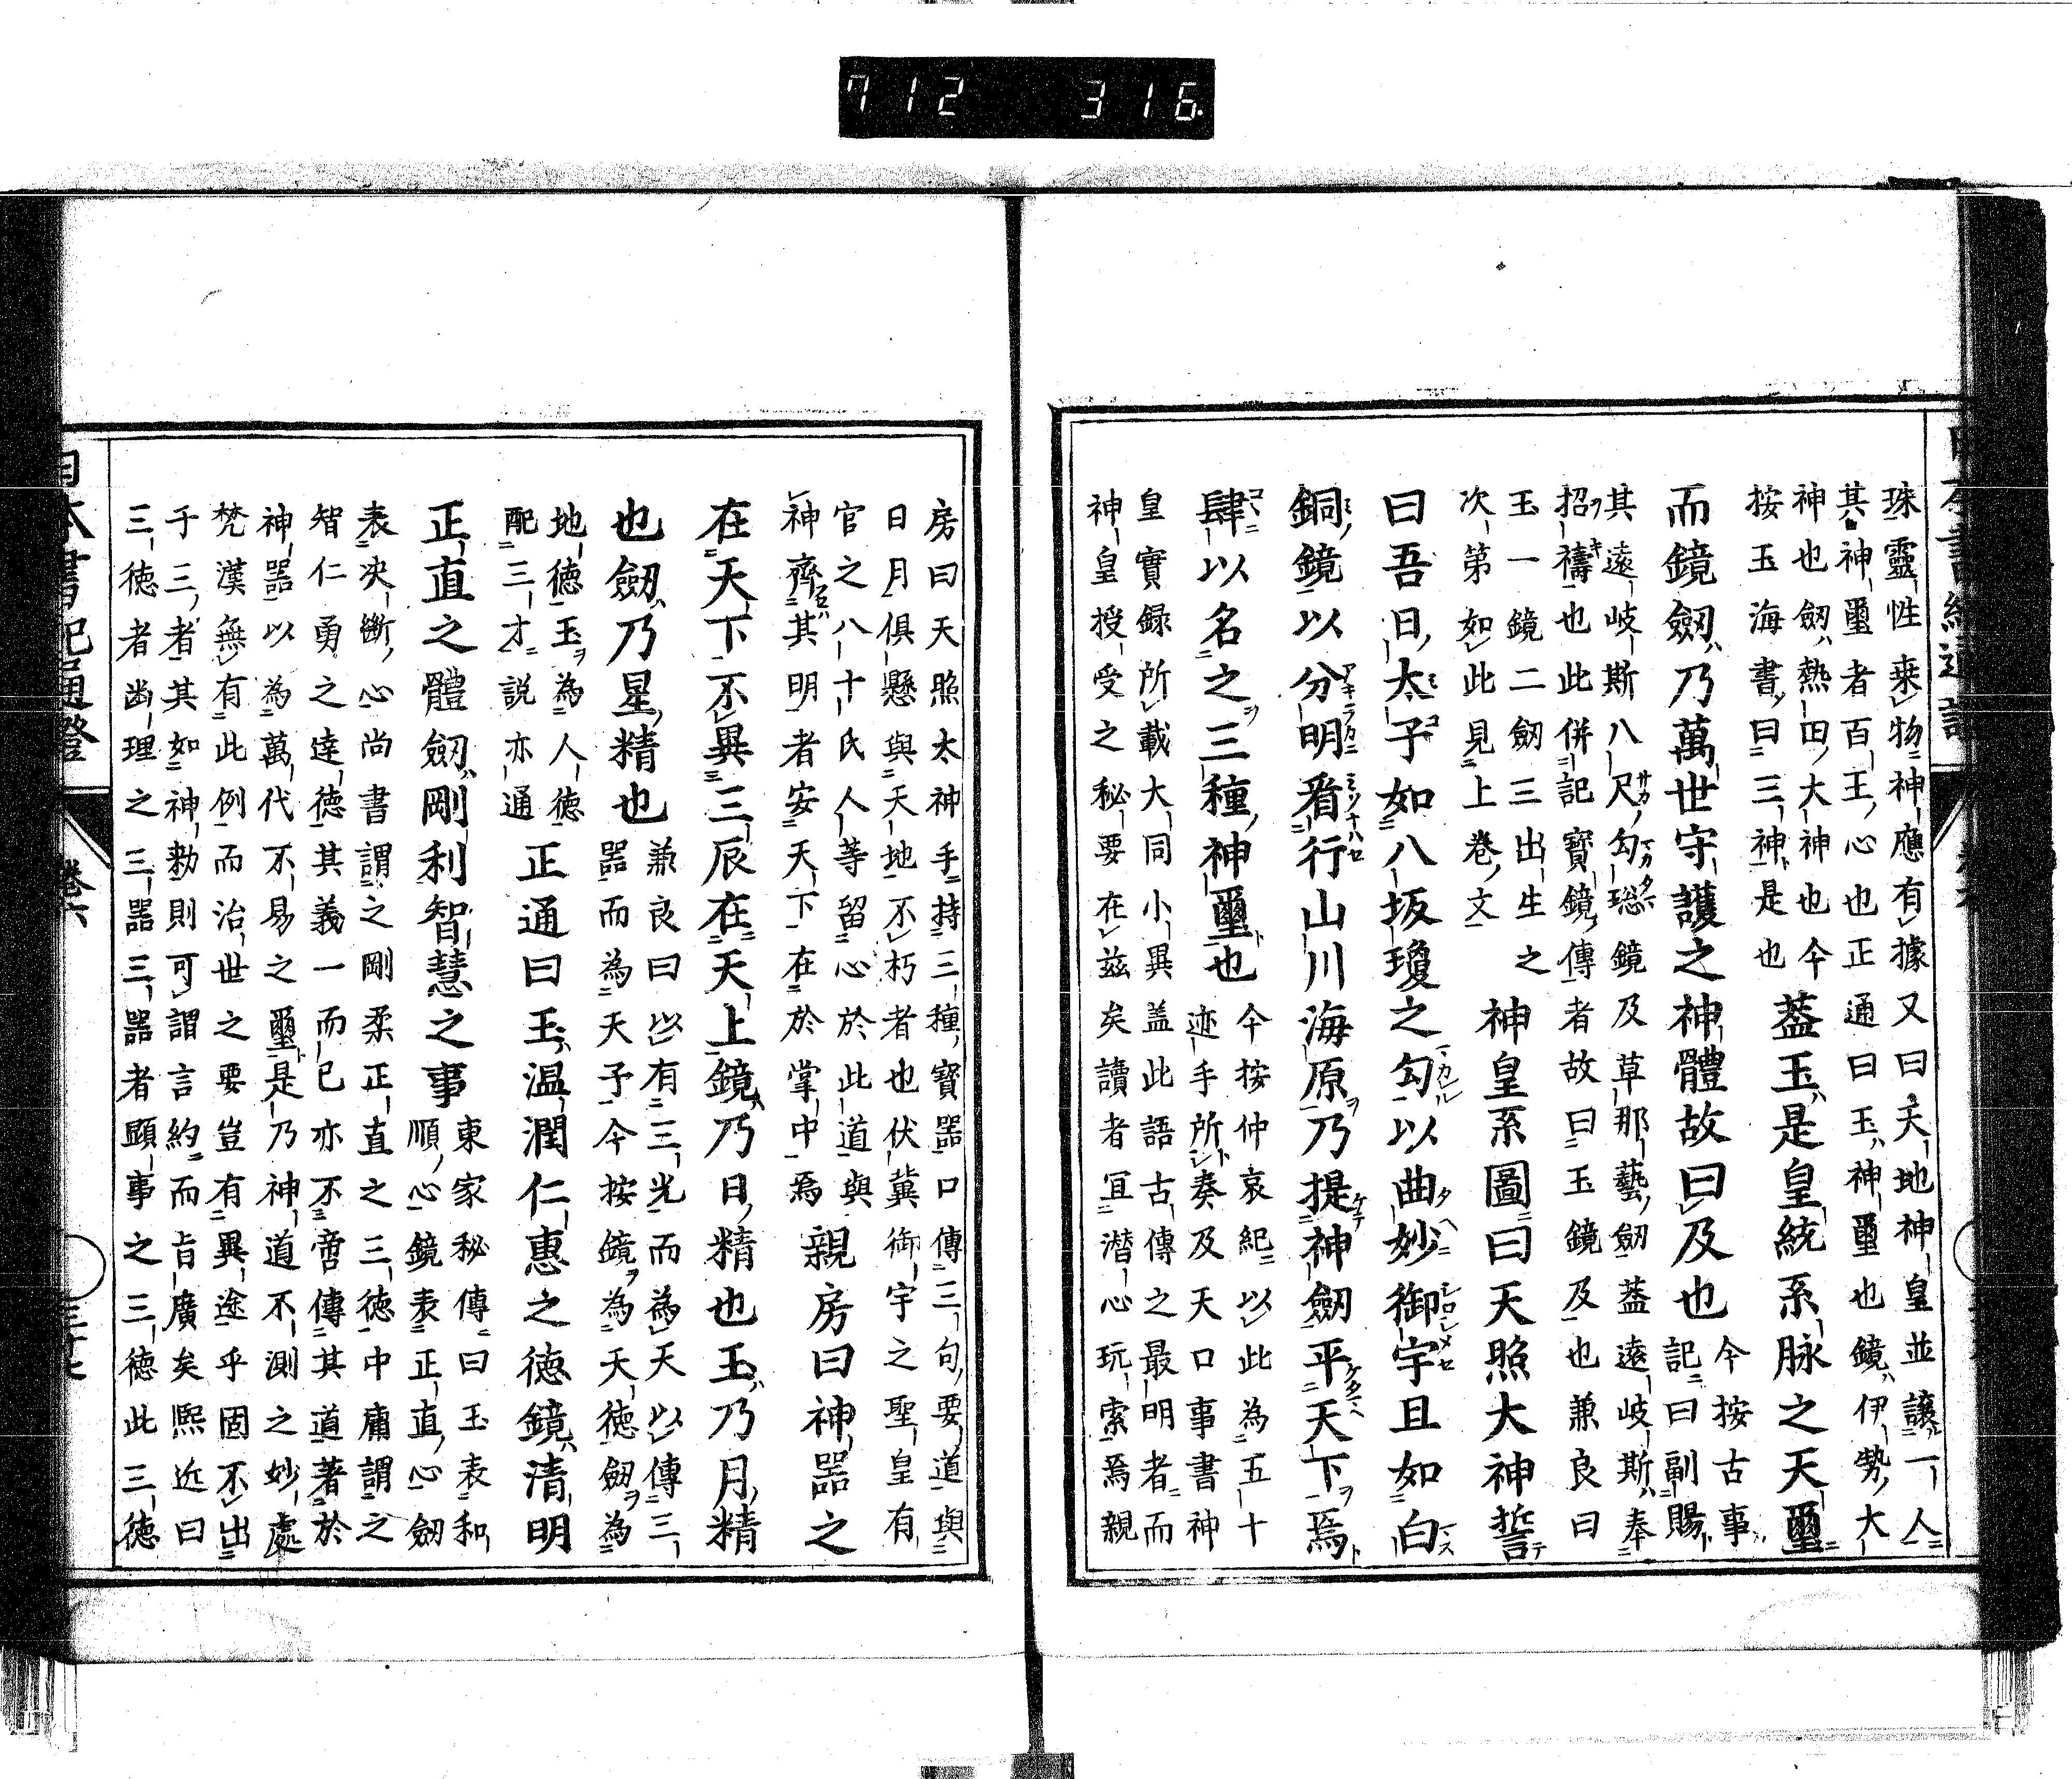 712 316
珠靈性乗物神應有據又曰天地神皇並譲一人
其神璽者百王心也正通曰玉神璽也鏡伊勢大
神也劔熱田大神也今
按玉海書曰三神是也
葢玉是皇統系脉之天璽
而鏡劔乃萬世守護之神體故曰及也
今按古事
記曰副賜
其遠岐斯八尺勾璁鏡及草那藝劔葢遠岐斯奉
招禱也此併記寶鏡傳者故曰玉鏡及也兼良曰
玉一鏡二劔三出生之
次第如此見上巻文
神皇系圖曰天照大神誓
曰吾日太子如八坂瓊之勾以曲妙御宇且如白
銅鏡以分明看行山川海原乃提神劔平天下焉
肆以名之三種神璽也
今按仲哀紀以此為五十
迹手所奏及天口事書神
皇實録所載大同小異盖此語古傳之最明者而
神皇授受之秘要在茲矣讀者宜潛心玩索焉親
房曰天照太神手持三種寳器口傳三句要道與
日月俱懸與天地不朽者也伏冀御宇之聖皇有
官之八十氏人等留心於此道與
神齊其明者安天下在於掌中焉
親房曰神器之
在天下不異三辰在天上鏡乃日精也玉乃月精
也劔乃星精也
兼良曰此有三光而為天以傳三
器而為天子今按鏡為天徳劔為
地徳玉為人徳
配三才説亦通
正通曰玉温潤仁惠之徳鏡清明
正直之體劔剛利智慧之事
東家秘傳曰玉表和
順心鏡表正直心劔
表决斷心尚書謂之剛柔正直之三徳中庸謂之
智仁勇之達徳其義一而已亦不啻傳其道著於
神器以為萬代不易之璽是乃神道不測之妙處
梵漢無有此例而治世之要豈有異途乎固不出
于三者其如神勅則可謂言約而旨廣矣熙近曰
三徳者幽理之三器三器者顕事之三徳此三徳
日本書紀通證
卷六
三十七